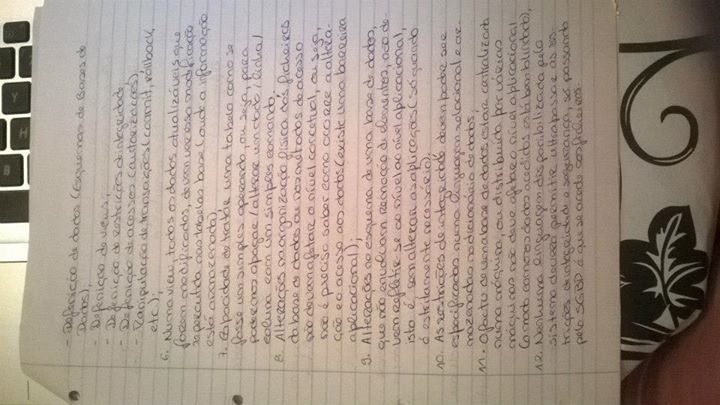 - Definição de dados (Esquemas de Bases de
Dados);
- Definição de views;
- Definição de restrições de integridade
- Definição de acessos (autorizações);
- Manipulação de transações (commit, rollback,
etc.);
6. Numa view, todos os dados atualizáveis que
forem modificados, devem ver essa modificação
repercutida nas tabelas base (onde a informação
está armazenada).
7. Capacidade de tratar uma tabela como se
fosse um simples operando, ou seja, para
podermos apagar/alterar um dado/linha/
coluna com um simples comando.
8. Alterações na organização física dos ficheiros
da base de dados ou nos métodos de acesso
não devem afetar o nível conceptual, ou seja,
não é preciso saber como ocorre a altera-
ção e o acesso aos dados (existe uma barreira
aplicacional);
9. Alterações no esquema de uma base de dados,
que não envolvam remoção de elementos, não de-
vem refletir-se ao nível ao nível aplicacional,
isto é, sem alterar as aplicações (só quando
é estritamente necessário).
10. As restrições de integridade devem poder ser
especificadas numa linguagem relacional e ar-
mazenadas no dicionário de dados,
11. O facto de uma base de dados estar centralizada
numa máquina, ou distribuída por várias
máquinas não deve afetar o nível aplicacional
(o modo como os dados
12. Nenhuma linguagem disponibilizada pelo
sistema deverá permitir ultrapassar as res-
trições de integridade e segurança, só passando
pelo SGBD é que se acede aos ficheiros.